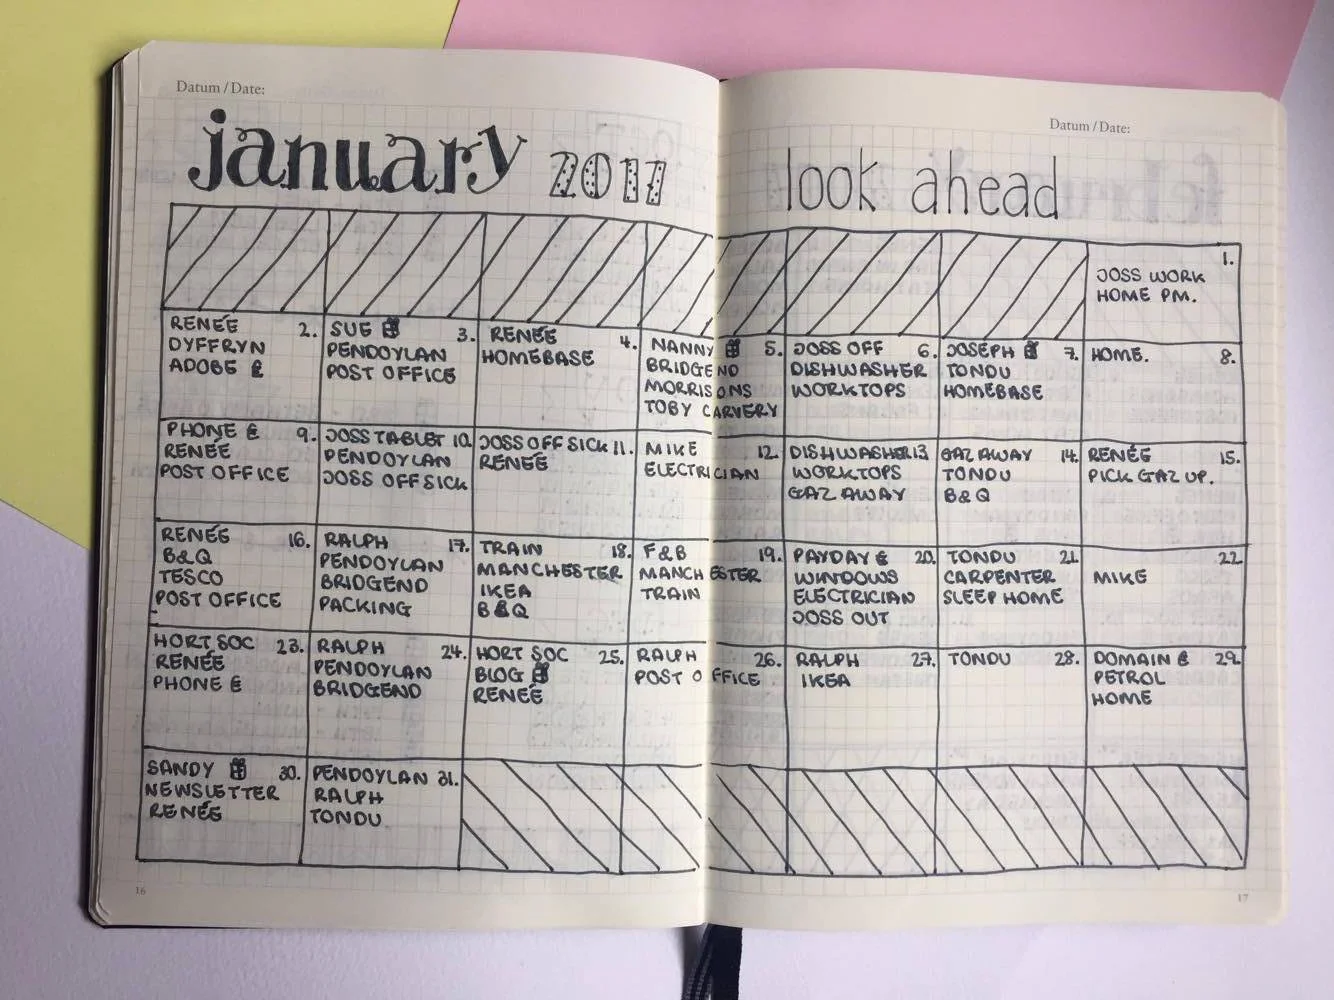 Datum / Date:
Datum / Date:
january 2017 look ahead
1.
JOSS WORK
HOME PM.
RENÉE 2.
DYFFRYN
ADOBE £
SUE 3.
PENDOYLAN
POST OFFICE
RENÉE 4.
HOMEBASE
NANNY 5.
BRIDGEND
MORRISONS
TOBY CARVERY
JOSS OFF 6.
DISHWASHER
WORKTOPS
JOSEPH 7.
TONDU
HOMEBASE
HOME. 8.
PHONE £ 9.
RENÉE
POST OFFICE
JOSS TABLET 10.
PENDOYLAN
JOSS OFF SICK
JOSS OFF SICK 11.
RENÉE
MIKE 12.
ELECTRICIAN
DISHWASHER 13.
WORKTOPS
GAZ AWAY
GAZ AWAY 14.
TONDU
B&Q
RENÉE 15.
PICK GAZ UP.
RENÉE 16.
B&Q
TESCO
POST OFFICE
RALPH 17.
PENDOYLAN
BRIDGEND
PACKING
TRAIN 18.
MANCHESTER
IKEA
B&Q
F&B 19.
MANCHESTER
TRAIN
PAYDAY £ 20.
WINDOWS
ELECTRICIAN
JOSS OUT
TONDU 21.
CARPENTER
SLEEP HOME
22.
MIKE
HORT SOC 23.
RENÉE
PHONE £
RALPH 24.
PENDOYLAN
BRIDGEND
HORT SOC 25.
BLOG
RENÉE
RALPH 26.
POST OFFICE
RALPH 27.
IKEA
TONDU 28.
DOMAIN £ 29.
PETROL
HOME
SANDY 30.
NEWSLETTER
RENÉE
PENDOYLAN 31.
RALPH
TONDU
16
17